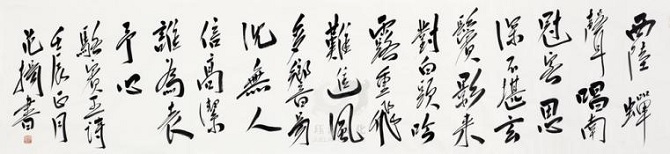 西陸蟬
聲唱南
冠客思
深不堪玄
鬢影来
對白頭吟
露重飛
難進風
多響易
沈無人
信高潔
誰為表
予心
駱賓王詩
壬辰正月
范揚書